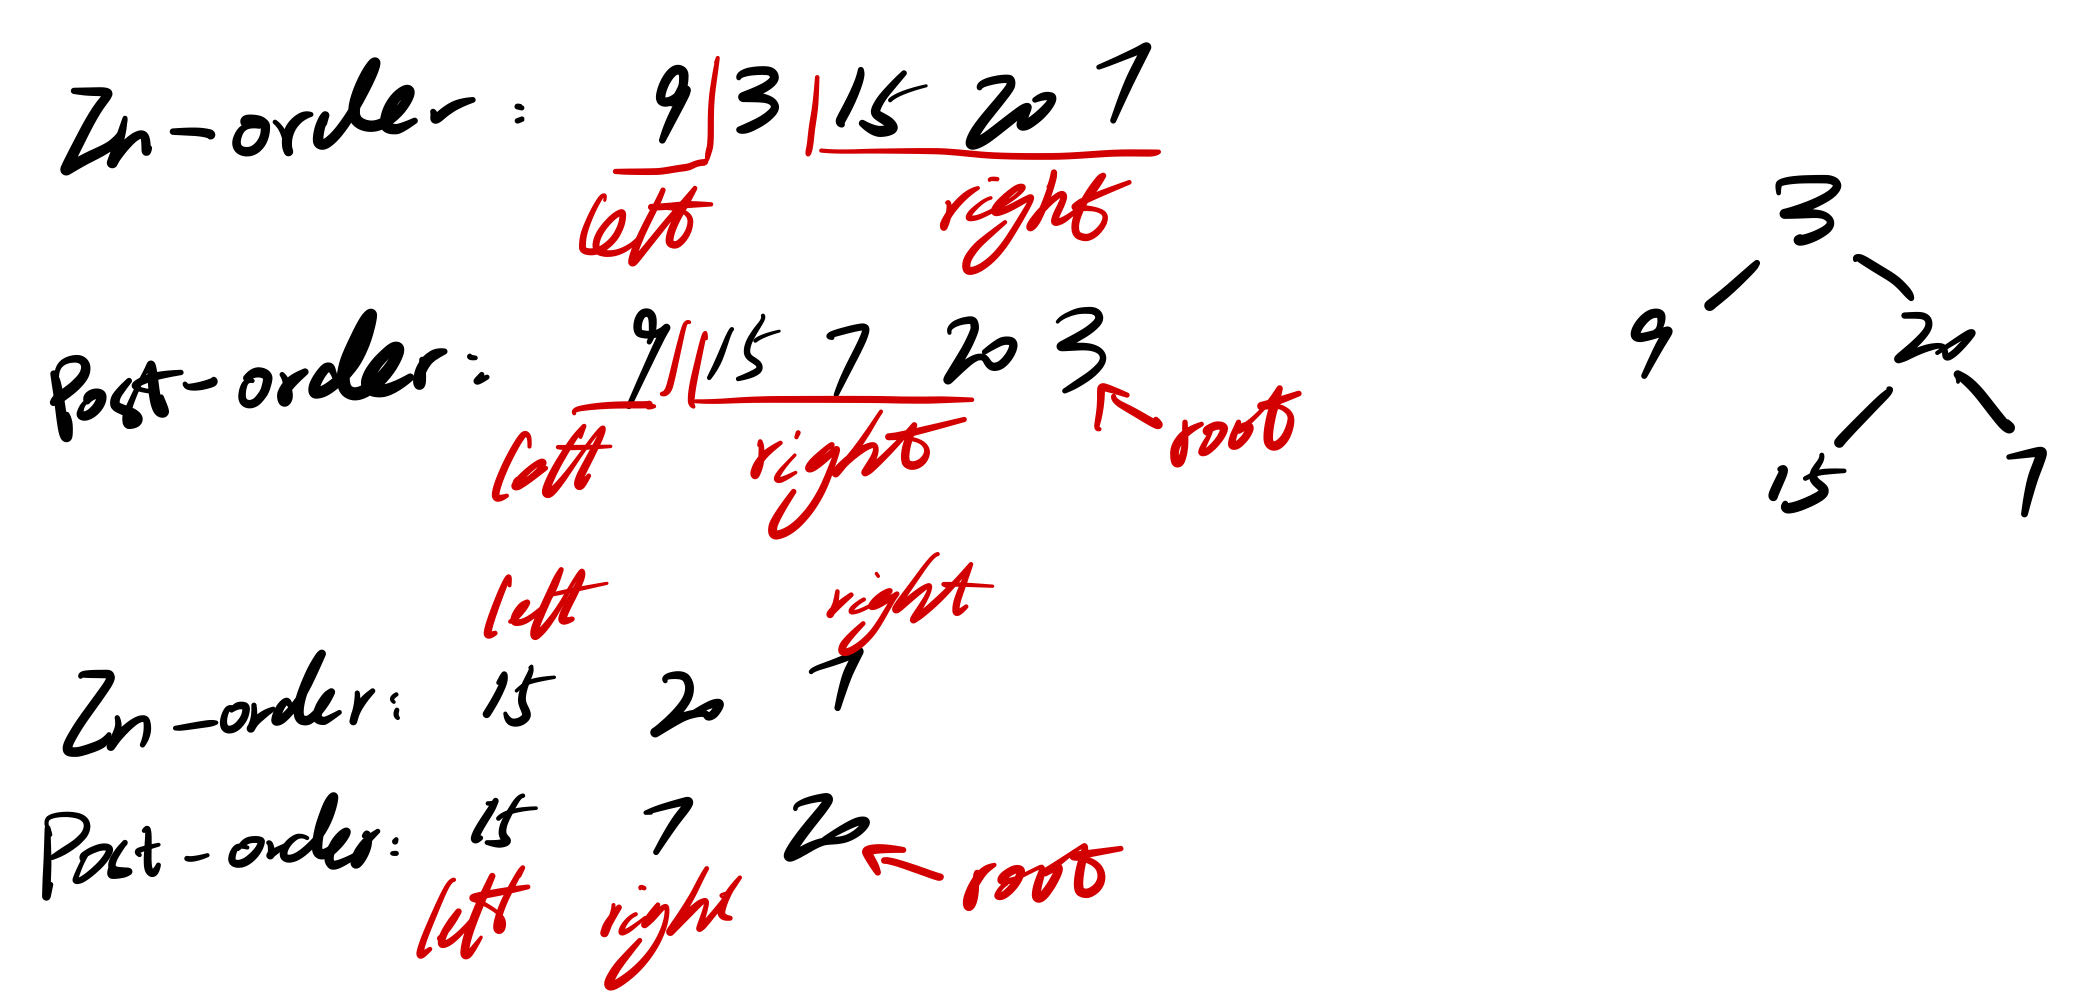 In-order: 9 3 15 20 7
left right
3
Post-order: 9 15 7 20 3
9 20
left right root
15 7
left right
In-order: 15 20 7
Post-order: 15 7 20
left right root